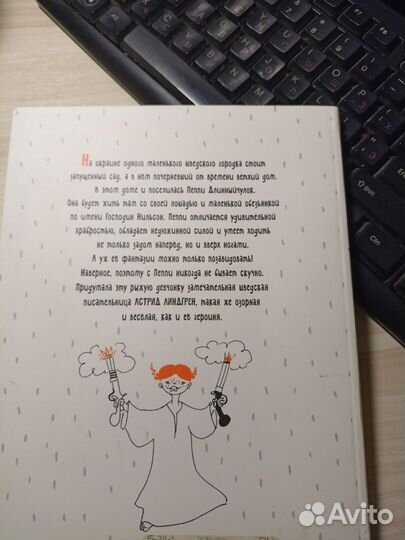 На окраине одного маленького шведского городка стоит
запущенный сад, а в нём почерневший от времени ветхий дом.
В этом доме и поселилась Пеппи Длинныйчулок.
Она будет жить там со своей лошадью и маленькой обезьянкой
по имени Господин Нильсон. Пеппи отличается удивительной
храбростью, обладает недюжинной силой и умеет ходить
не только задом наперёд, но и вверх ногами.
А уж её фантазии можно только позавидовать!
Наверное, поэтому с Пеппи никогда не бывает скучно.
Придумала эту рыжую девчонку замечательная шведская
писательница АСТРИД ЛИНДГРЕН, такая же озорная
и весёлая, как и её героиня.
Avito